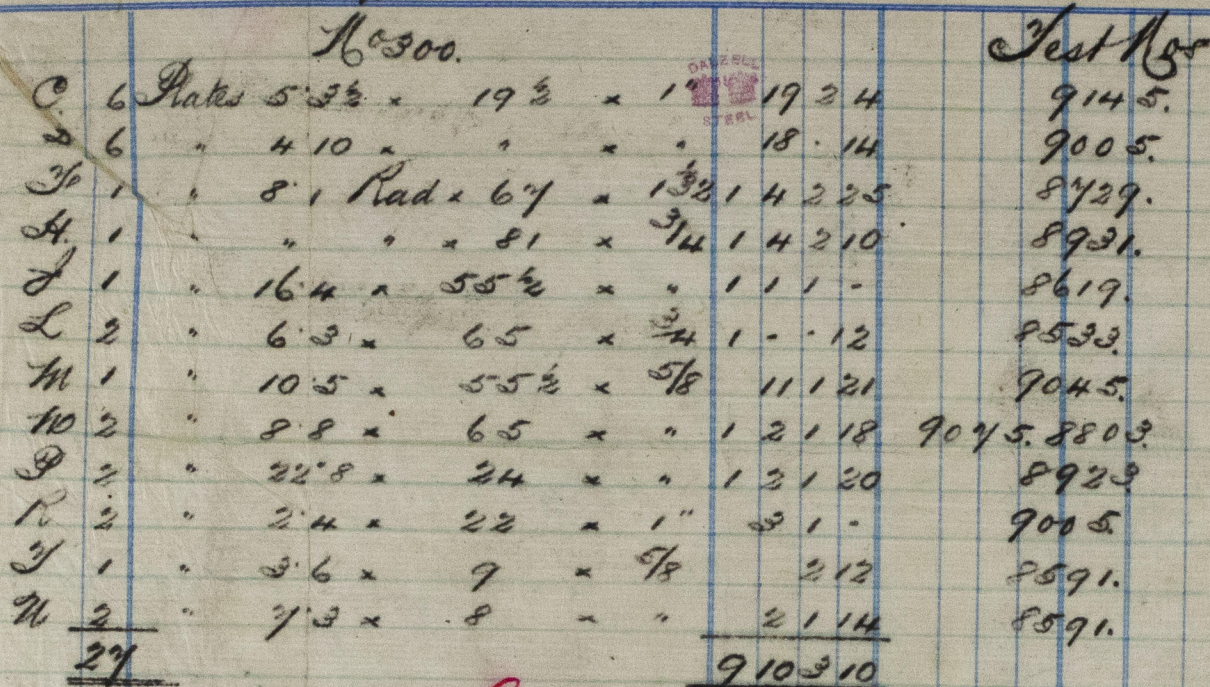 No 300. Test Nos
DALZELL
STEEL
C. 6 Plates 5'3½ x 19½ x 1" 19 2 4 9145.
D 6 " 4 10 x " x " 18 · 14 9005.
F 1 " 8'1 Rad x 67 x 1 3/32 1 4 2 25 8729.
H. 1 " " " x 81 x 3/4 1 4 2 10 8931.
J 1 " 16'4 x 55½ x " 1 1 1 - 8619.
L 2 " 6'3 x 65 x 3/4 1 - · 12 8533.
M 1 " 10'5 x 55½ x 5/8 11 1 21 9045.
N 2 " 8'8 x 65 x " 1 2 1 18 9075. 8803.
P 2 " 22'8 x 24 x " 1 2 1 20 8923
R 2 " 2'4 x 22 x 1" 3 1 - 9005
T 1 " 3'6 x 9 x 5/8 2 12 8591.
U 2 " 7'3 x 8 x " 2 1 14 8591.
27 9 10 3 10